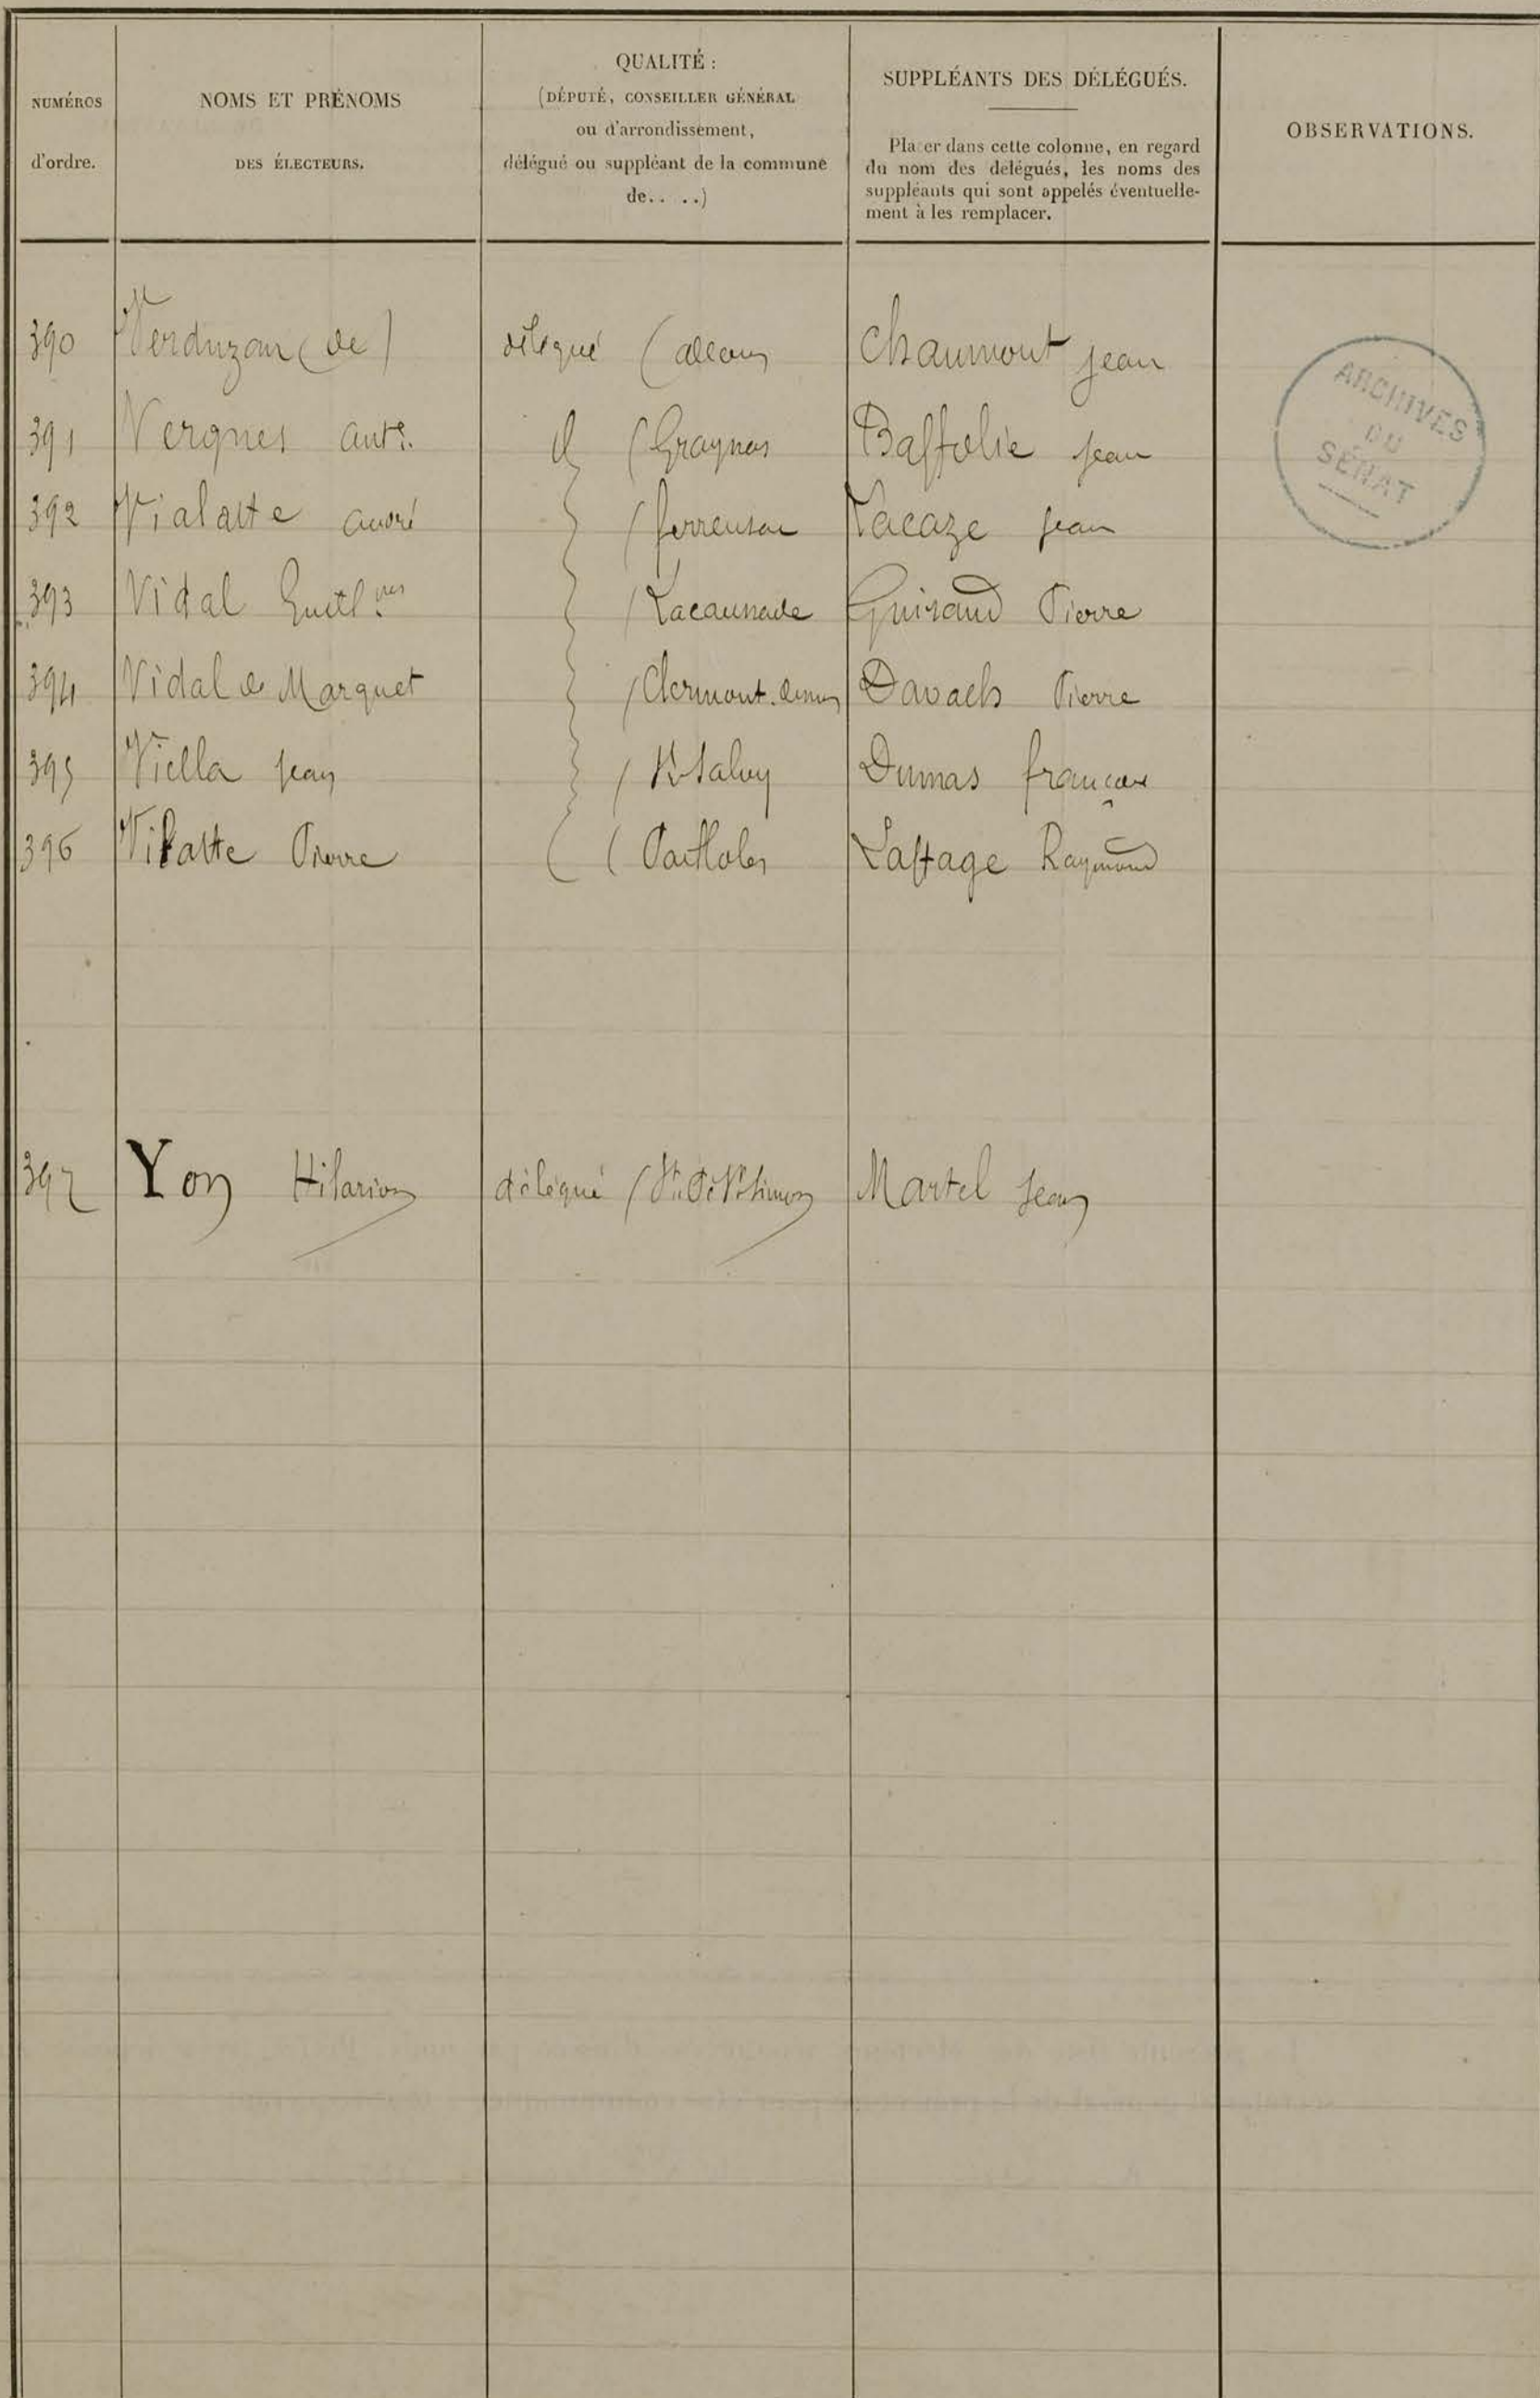 NUMÉROS
d'ordre.
NOMS ET PRÉNOMS
DES ÉLECTEURS.
QUALITÉ :
(DÉPUTÉ, CONSEILLER GÉNÉRAL
ou d'arrondissement,
délégué ou suppléant de la commune
de.. ..)
SUPPLÉANTS DES DÉLÉGUÉS.
Pla er dans cette colonne, en regard
du nom des délégués, les noms des
suppléants qui sont appelés éventuelle-
ment à les remplacer.
OBSERVATIONS.
390 Verduzan (de) délégué Chaumont Jean
391 Vergnes Ant.e (Graynas Baffolie Jean
392 Vialatte André (ferrensac Lacaze Jean
393 Vidal (Lacaunade Guiraud Pierre
394 Vidal de Marquet (Clermont-dessus Davach Pierre
395 Viella Jean (St Salvy Dumas françois
396 Pierre Laffage Raymond
397 Yon Hilarion délégué Martel Jean
ARCHIVES
DU
SÉNAT